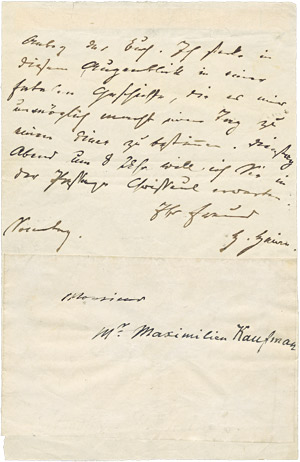 Anbey das Buch. Ich stecke in
diesem Augenblick in einer
fatalen Geschichte, die es mir
unmöglich macht einen Tag zu
einem Diner zu bestimmen. Dienstag
Abend um 8 Uhr will ich Sie in
der Passage Choiseul erwarten.
Ihr Freund
H. Heine.
Sonntag.
Monsieur
Mr. Maximilien Kaufman